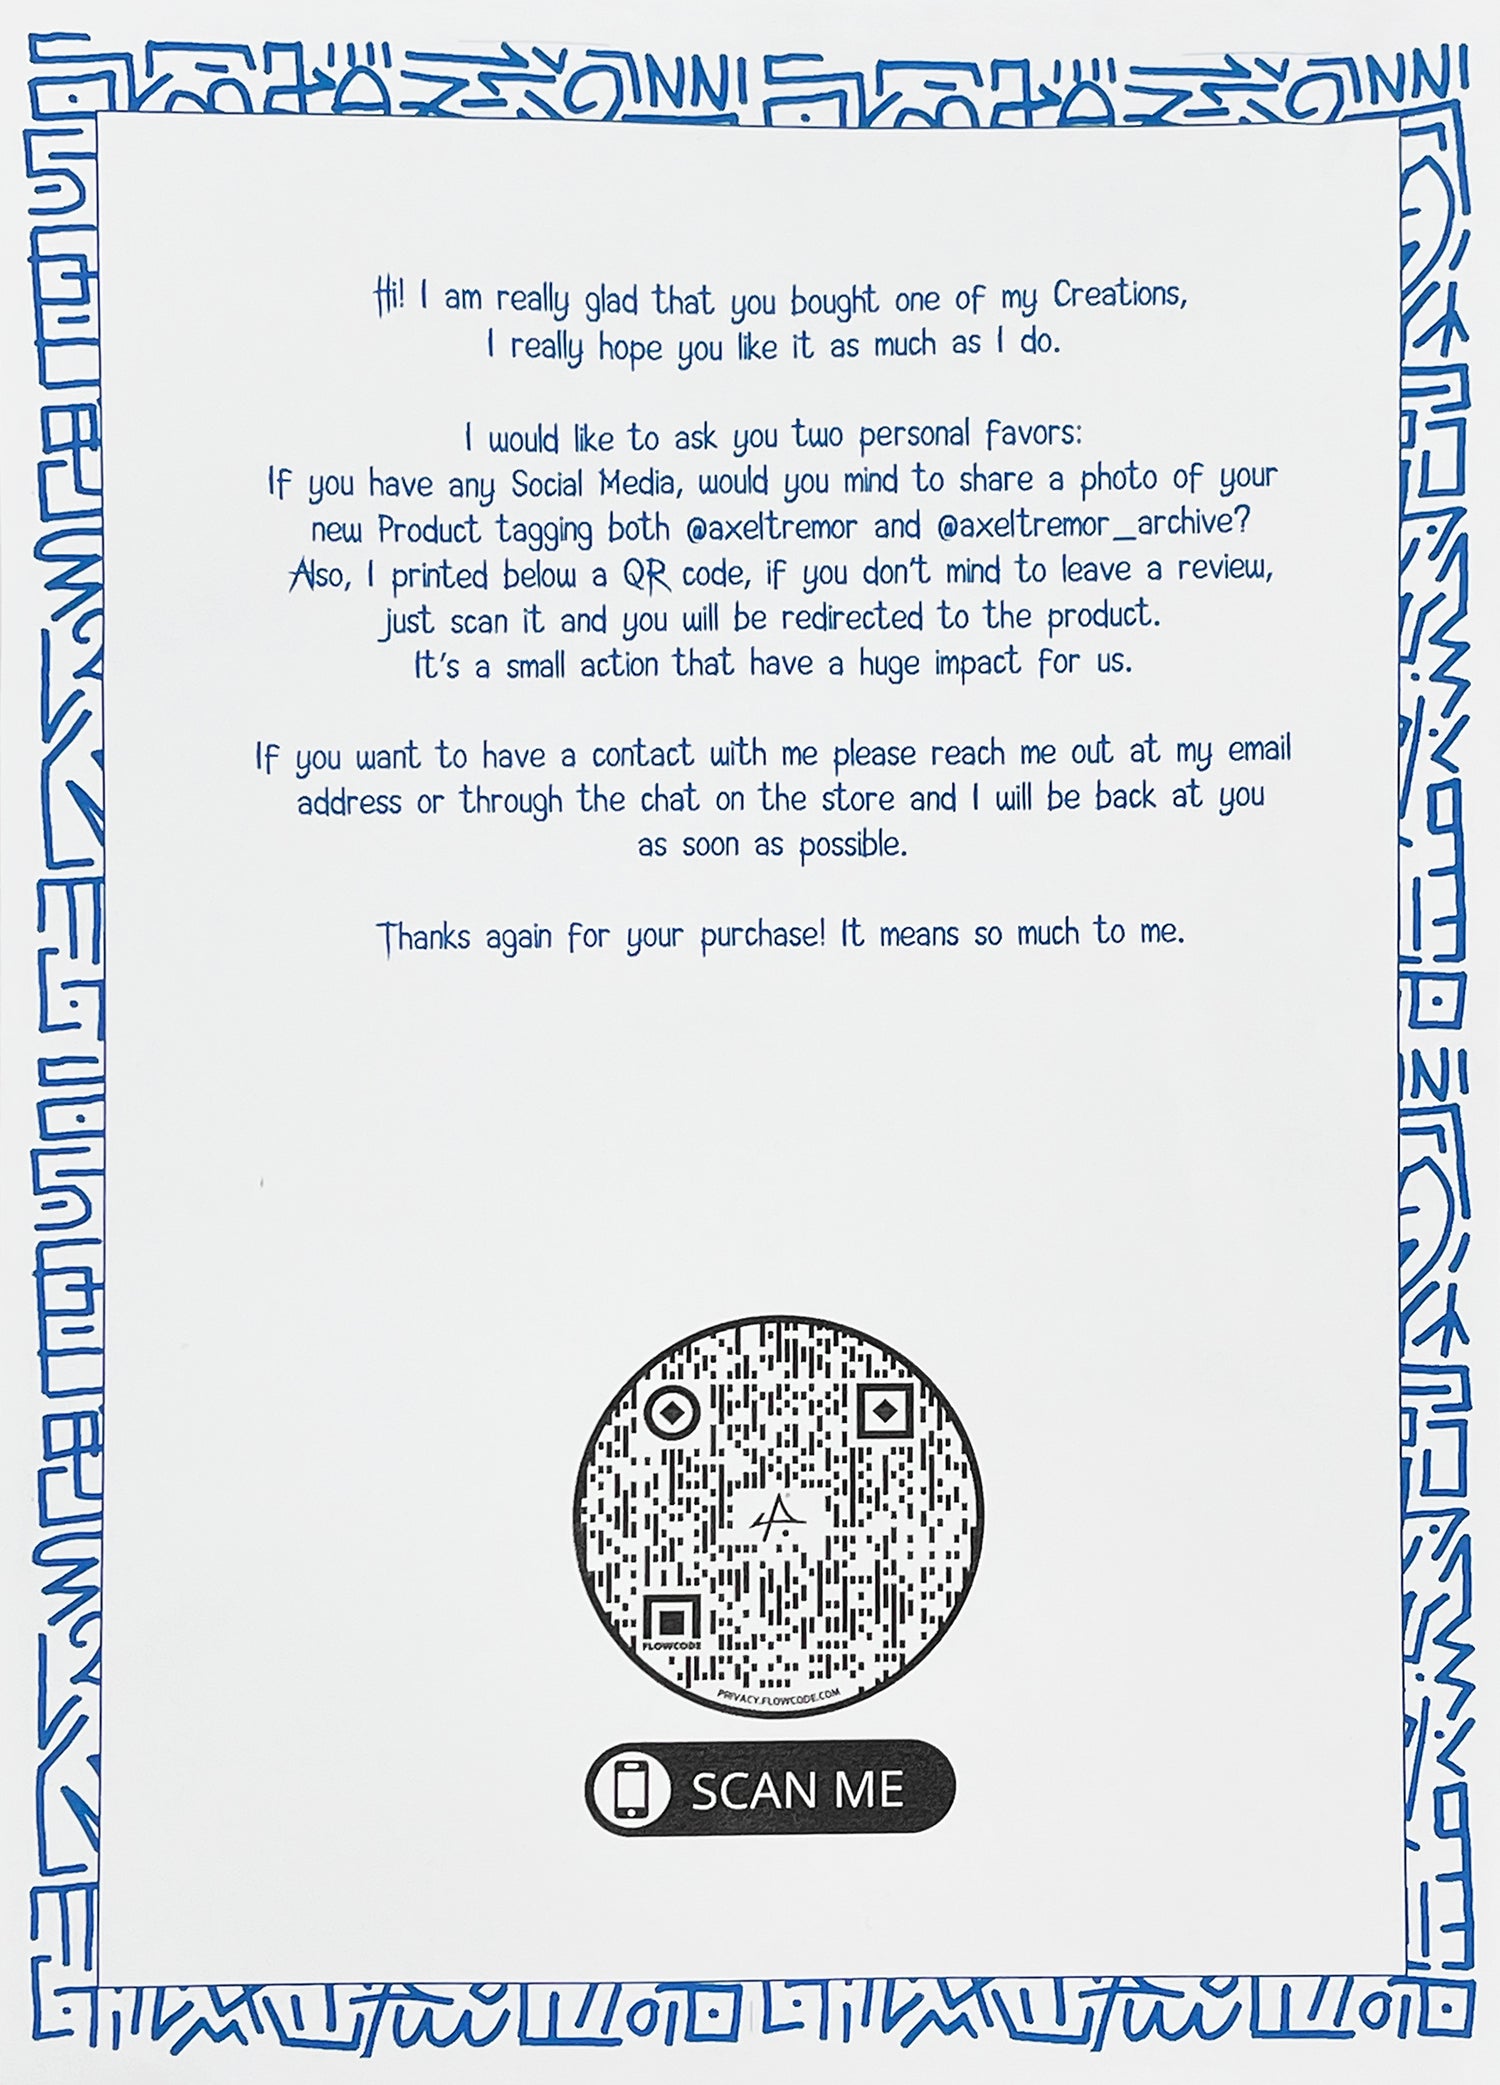 Hi! I am really glad that you bought one of my Creations,
I really hope you like it as much as I do.
I would like to ask you two personal favors:
If you have any Social Media, would you mind to share a photo of your
new Product tagging both @axeltremor and @axeltremor_archive?
Also, I printed below a QR code, if you don't mind to leave a review,
just scan it and you will be redirected to the product.
It's a small action that have a huge impact for us.
If you want to have a contact with me please reach me out at my email
address or through the chat on the store and I will be back at you
as soon as possible.
Thanks again for your purchase! It means so much to me.
FLOWCODE
PRIVACY.FLOWCODE.COM
SCAN ME